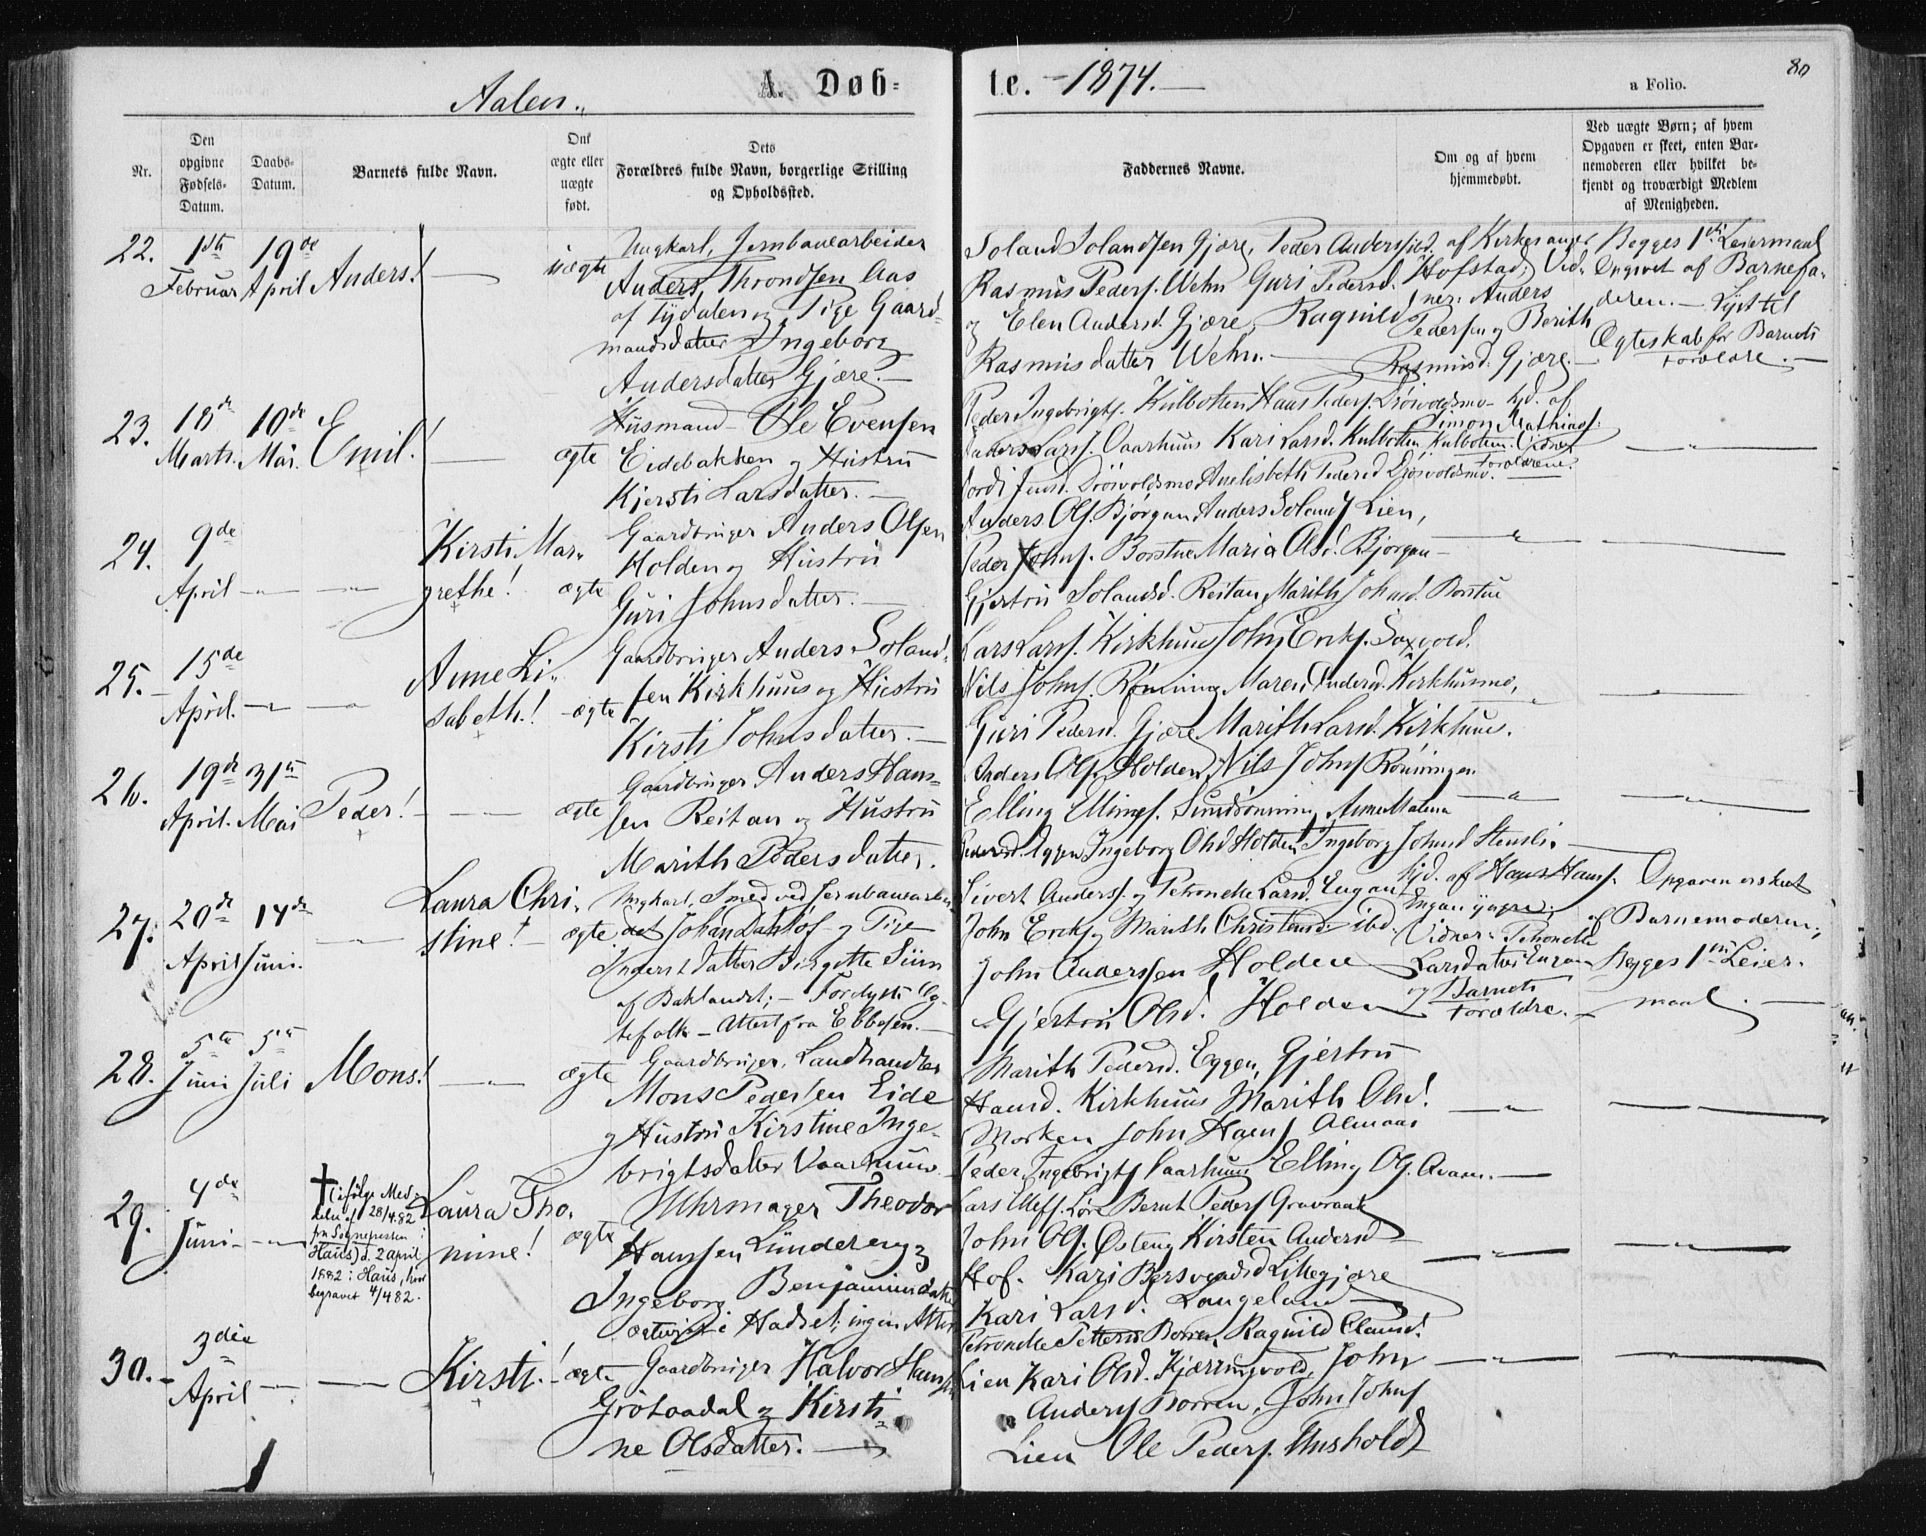 Aalen.
A. Døb=
te. -1874.-
80
a Folio.
Nr.
Den opgivne Fødsels-Datum.
Daabs-Datum.
Barnets fulde Navn.
Om ægte eller uægte født.
Dets Forældres fulde Navn, borgerlige Stilling og Opholdssted.
Faddernes Navne.
Om og af hvem hjemmedøbt.
Ved uægte Børn; af hvem Opgaven er skeet, enten Barnemoderen eller hvilket bekjendt og troværdigt Medlem af Menigheden.
22.
1ste Februar
19de April
Anders!
uægte
Ungkarl, Jernbanearbeider
Anders Throndsen Aas
af Tydalen og Pige Gaard-
mandsdatter Ingeborg
Andersdatter Gjære.-
Soland Solandsen Gjære, Peder Anderss. ibd.
Rasmus Peders. Wehn Guri Pedersd.
og Elen Andersd. Gjære, Ragnild
Rasmusdatter Wehn.
af Kirkesanger
Hofstad; Vid-
ner: Anders
Pedersen og Berith
Rasmusd. Gjære.-
Begges 1ste Leiermaal
Opgivet af Barnefa-
deren.- Lyst til
Ægteskab for Barnets
Forældre.-
23.
18de Marts.
10de Mai.
Emil!
ægte
Husmand Ole Evensen
Eidebakken og Hustru
Kjersti Larsdatter.-
Peder Ingebrigts. Kulbotten Hans Peders. Drøivoldsmo
Anders Lars. Vaarhuus Kari Larsd. Kulbotten
Jensd. Drøivoldsmo Anelisbeth Pedersd Drøivoldsmo.
hjd. af
Simon Mathias.
Kulbotten. Vidner
Forældrene.
24.
9de
April
Kirsti Mar-
grethe!
ægte
Gaardbruger Anders Olsen
Holden og Hustru
Guri Johnsdatter.-
Anders Ols. Bjørgan Anders Solands Lien,
Peder Johns. Borstue Maria Olsd. Bjørgan-
Gjertru Solandsd. Reitan, Marith Johnsd. Borstue
25.-
15de
April.
Anne Li-
sabeth.!
ægte
Gaardbruger Anders Soland-
sen Kirkhuus og Hustru
Kirsti Johnsdatter.-
Lars Lars. Kirkhuus John Eriks. Saxvold.
Nils Johns. Rønning Maren Andersd. Kirkhusmo,
Guri Pedersd. Gjære Marith Larsd. Kirkhuus.
26.
19de April.
31te Mai
Peder!
ægte
Gaardbruger Anders Han-
sen Reitan og Hustru
Marith Pedersdatter.
Anders Ols. Holden, Nils Johns Rønningen
Elling Ellings. Sundrønning, Anne Malena
Pedersd. Eggen Ingeborg Olsd Holden Ingeborg Johnsd Stensli
27.
20de April
14de Juni.
Laura Chri-
stine!
ægte
Ungkarl, Smed ved Jernbanearbei-
det Johan Dahlof og Pige
Birgitte Siun
af Baklandet;- Forlyste Æg-
tefolk- Attest fra Ebbesen.-
Sivert Anderss. og Petronelle Larsd. Engan
John Eriks. og Marith Christensd. ibd.
John Anderssen Holden
Gjertru Olsd. Holden
hjd. af Hans Hans.
Engan yngre;
Vidner: Petronelle
Larsdatter Engan
og Barnets
Forældre.-
Opgaven er skeet
af Barnemoderen;
Begges 1ste Leier-
maal.-
28.
5te Juni
5te Juli
Mons!
ægte
Gaardbruger, Landhandler
Mons Pedersen Eide
og Hustru Kirstine Inge-
brigtsdatter Vaarhuus
Marith Pedersd. Eggen, Gjertru
Hansd. Kirkhuus Marith Olsd.
Morken John Hans Almaas
Peder Ingebrigts Vaarhuus Elling Ols. Aasen.
29.
4de
Juni
† (ifølge Med-
delse af 28/4.82
fra Sognepresten i
Haus) d. 2 april
1882 i Haus, hvor
begravet 4/4 82.
Laura Tho-
mine!
ægte
Uhrmager Theodor
Hanssen Lundeng og
Ingeborg Benjaminsdatter
ægteviet i Hadsel, ingen Attest
Lars Ellefs. Løre Bernt Peders Gravraak
John Ols. Østeng Kirsten Andersd
Hof. Kari Bersvendsd Lillegjære
Kari Larsd. Langeland
30.-
3die
April
Kirsti.!
ægte
Gaardbruger Halvor Hansen
Grøtaadal og Kirsti-
ne Olsdatter.
Petronelle Pettersd Borren, Ragnild Olausd.
Lien Kari Olsd. Kjærringvold, John
Anders Borren, John Johns
Lien Ole Peders. Unsholdt